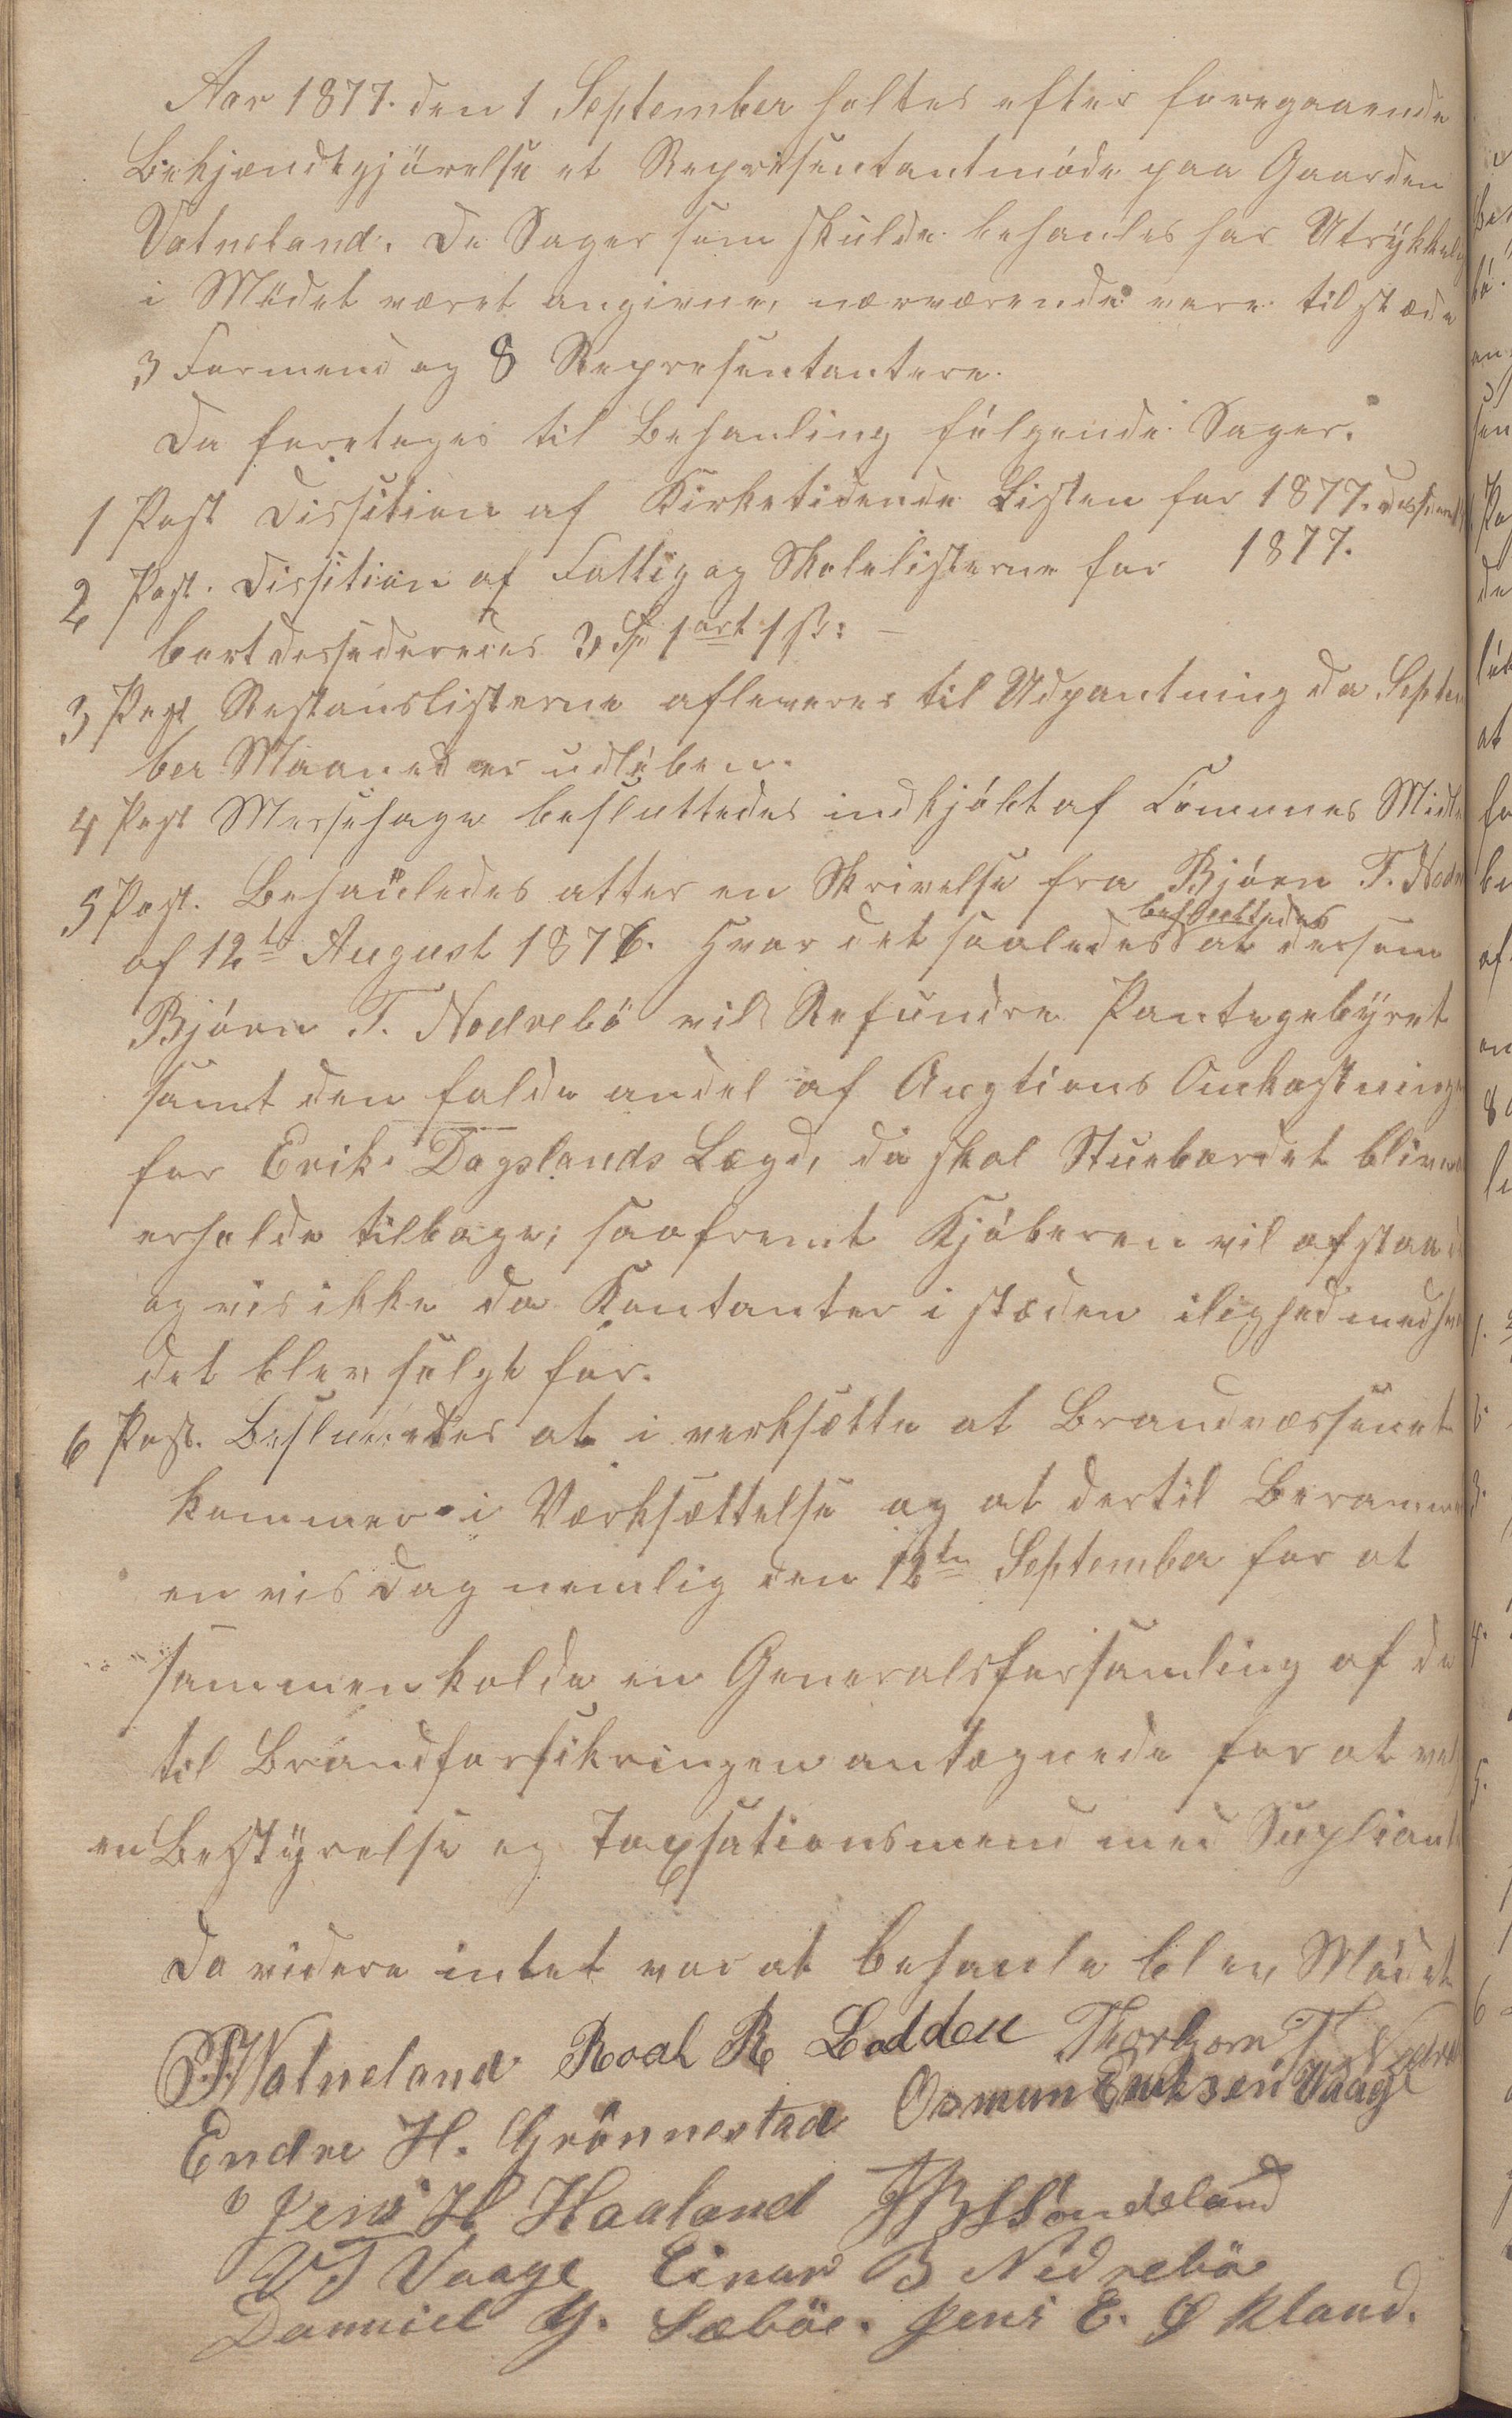 Aar 1877. den 1 September holtes efter foregaaende
Bekjendtgjörelse et Represententantmöde paa Gaarden
Vatneland. De Sager som skulde behanles har Utrykkelig
i Mödet været angivne, nærværende vare tilstæde
3 Formend og 8 Representantere.
Da foretages til Behanling fölgende Sager.
1 Post Dissition af Kirketidende Listen for 1877.
2 Post. Dissition af Fattig og Skolelisterne for 1877.
bortdessideredes 3 Sp 1 ort 1 ß: –
3 Post Restanslisterne afleveres til Udpantning da Septem
ber Maaned er udlöben.
4 Post Messehage besluttedes indkjöbt af Comunes Midler
5 Post. Behanledes atter en Skrivelse fra Björen T. Nedre
af 12te August 1876. Hvor det saaledes besluttedes at dersom
Björen T. Nedrebö vil Refundre Pantegebyret
samt den faldne andel af Augtions Omkostninger
for Erik Dagslands Lægd, da skal Stuebordet blive
erholde tilbage; saafremt Kjöberen vil afstaa d
og vis ikke da Kontanter i stæden ilighed med hva
det blev solgt for.
6 Post. Besluttedes at i verksætte at Brandvæssenet
kommer i Værksættelse og at dertil Beramme
en vis Dag nemlig den 12te September for at
sammenholde en Generalsforsamling af de
til Brandforsikringen antegnede for at vel
en Bestyrelse og Taxsationsmend med Supliant
Da videre intet var at behanle blev Mödet
Vatneland Roal R Lodden Thorbjorn T Nedre
Endre H. Grönnestad Osmun Eriksen Vaage
Jens H Haaland Söndeland
V T Vaage Einar B Nedrebö
Danniel G. Sæböe. Jens E. Ökland.